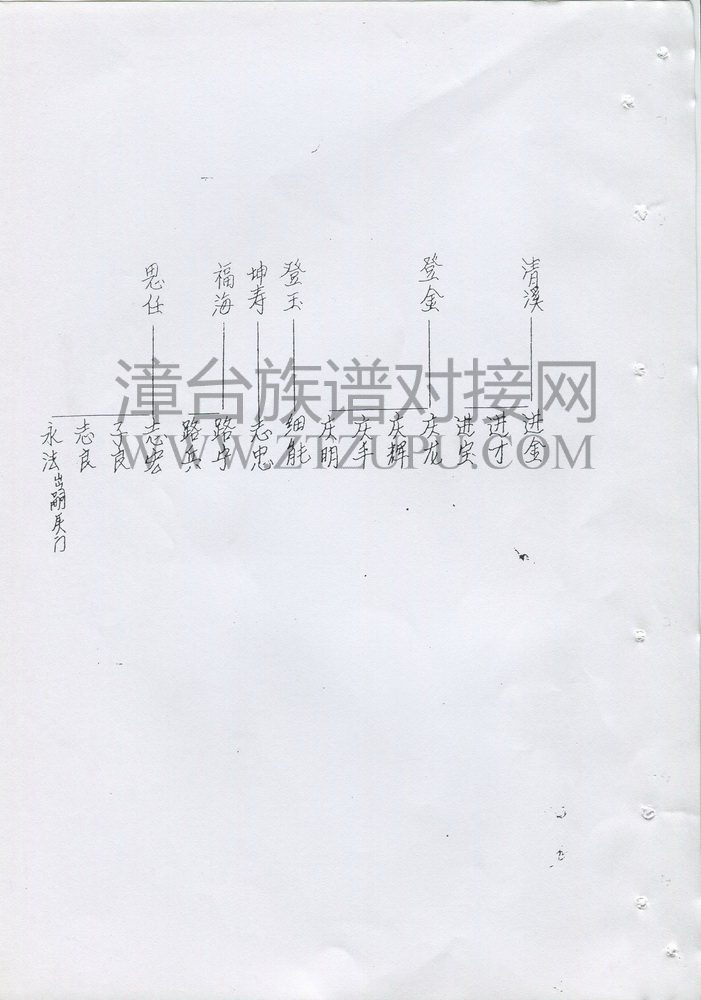 清溪
登金
登玉
坤寿
福海
思任
进金
进才
进宝
庆龙
庆辉
庆丰
庆明
细能
志忠
路宁
路兵
志宏
子良
志良
永法出嗣吴门
漳台族谱对接网
WWW.ZTZUPU.COM